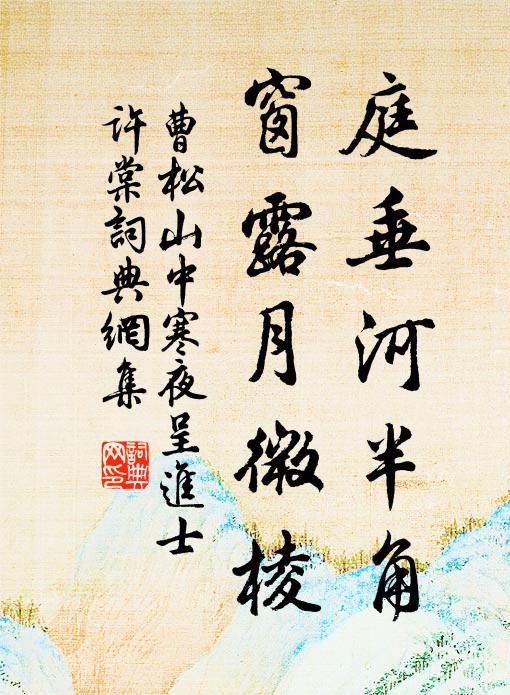 庭垂河半角
窗露月微棱
曹松山中寒夜呈進士
許棠詞典網集
詞典网印